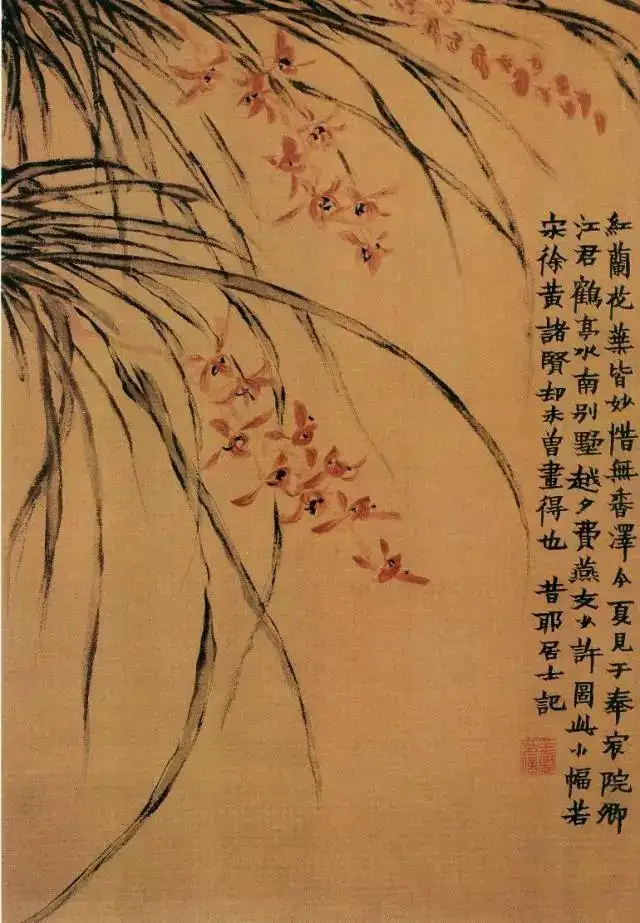 紅蘭花葉皆妙惜無香澤今夏見于奉宸院卿
江君鶴亭水南別墅越夕費燕支少許圖此小幅若
宋徐黃諸賢却未曾畫得也 昔耶居士記